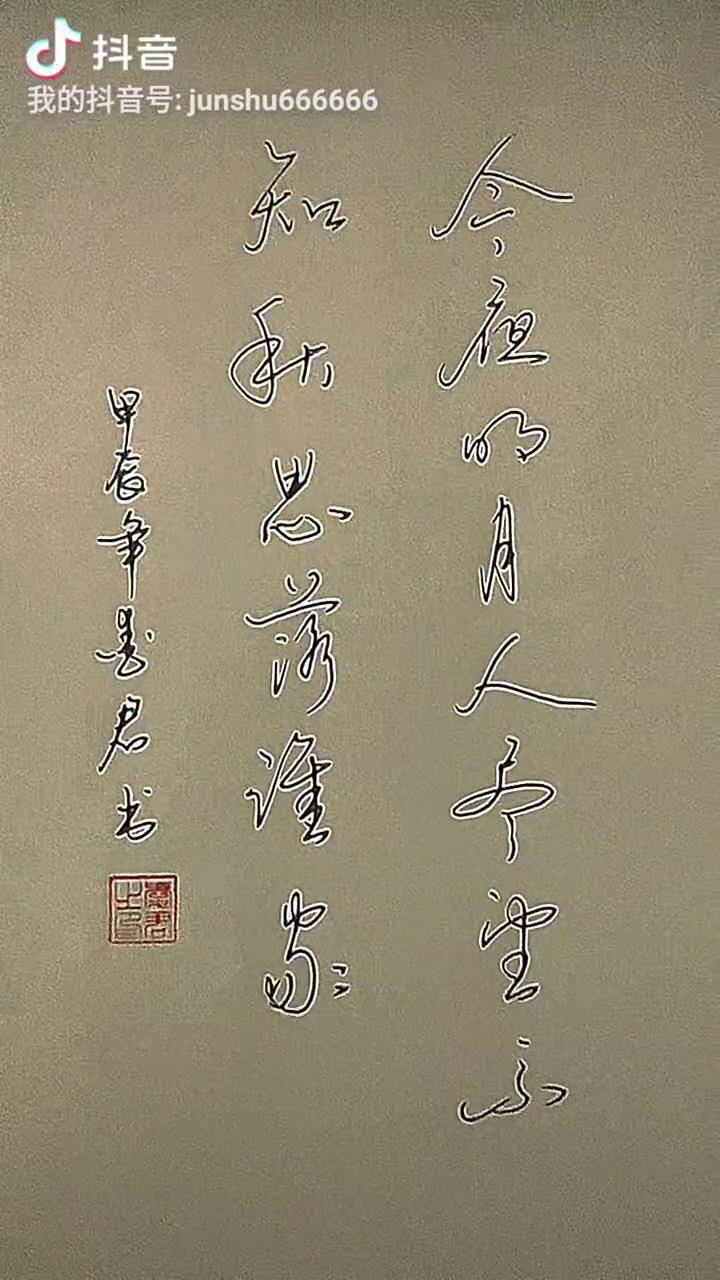 抖音
我的抖音号: junshu666666
今夜明月人尽望不
知秋思落谁家
甲辰年君书